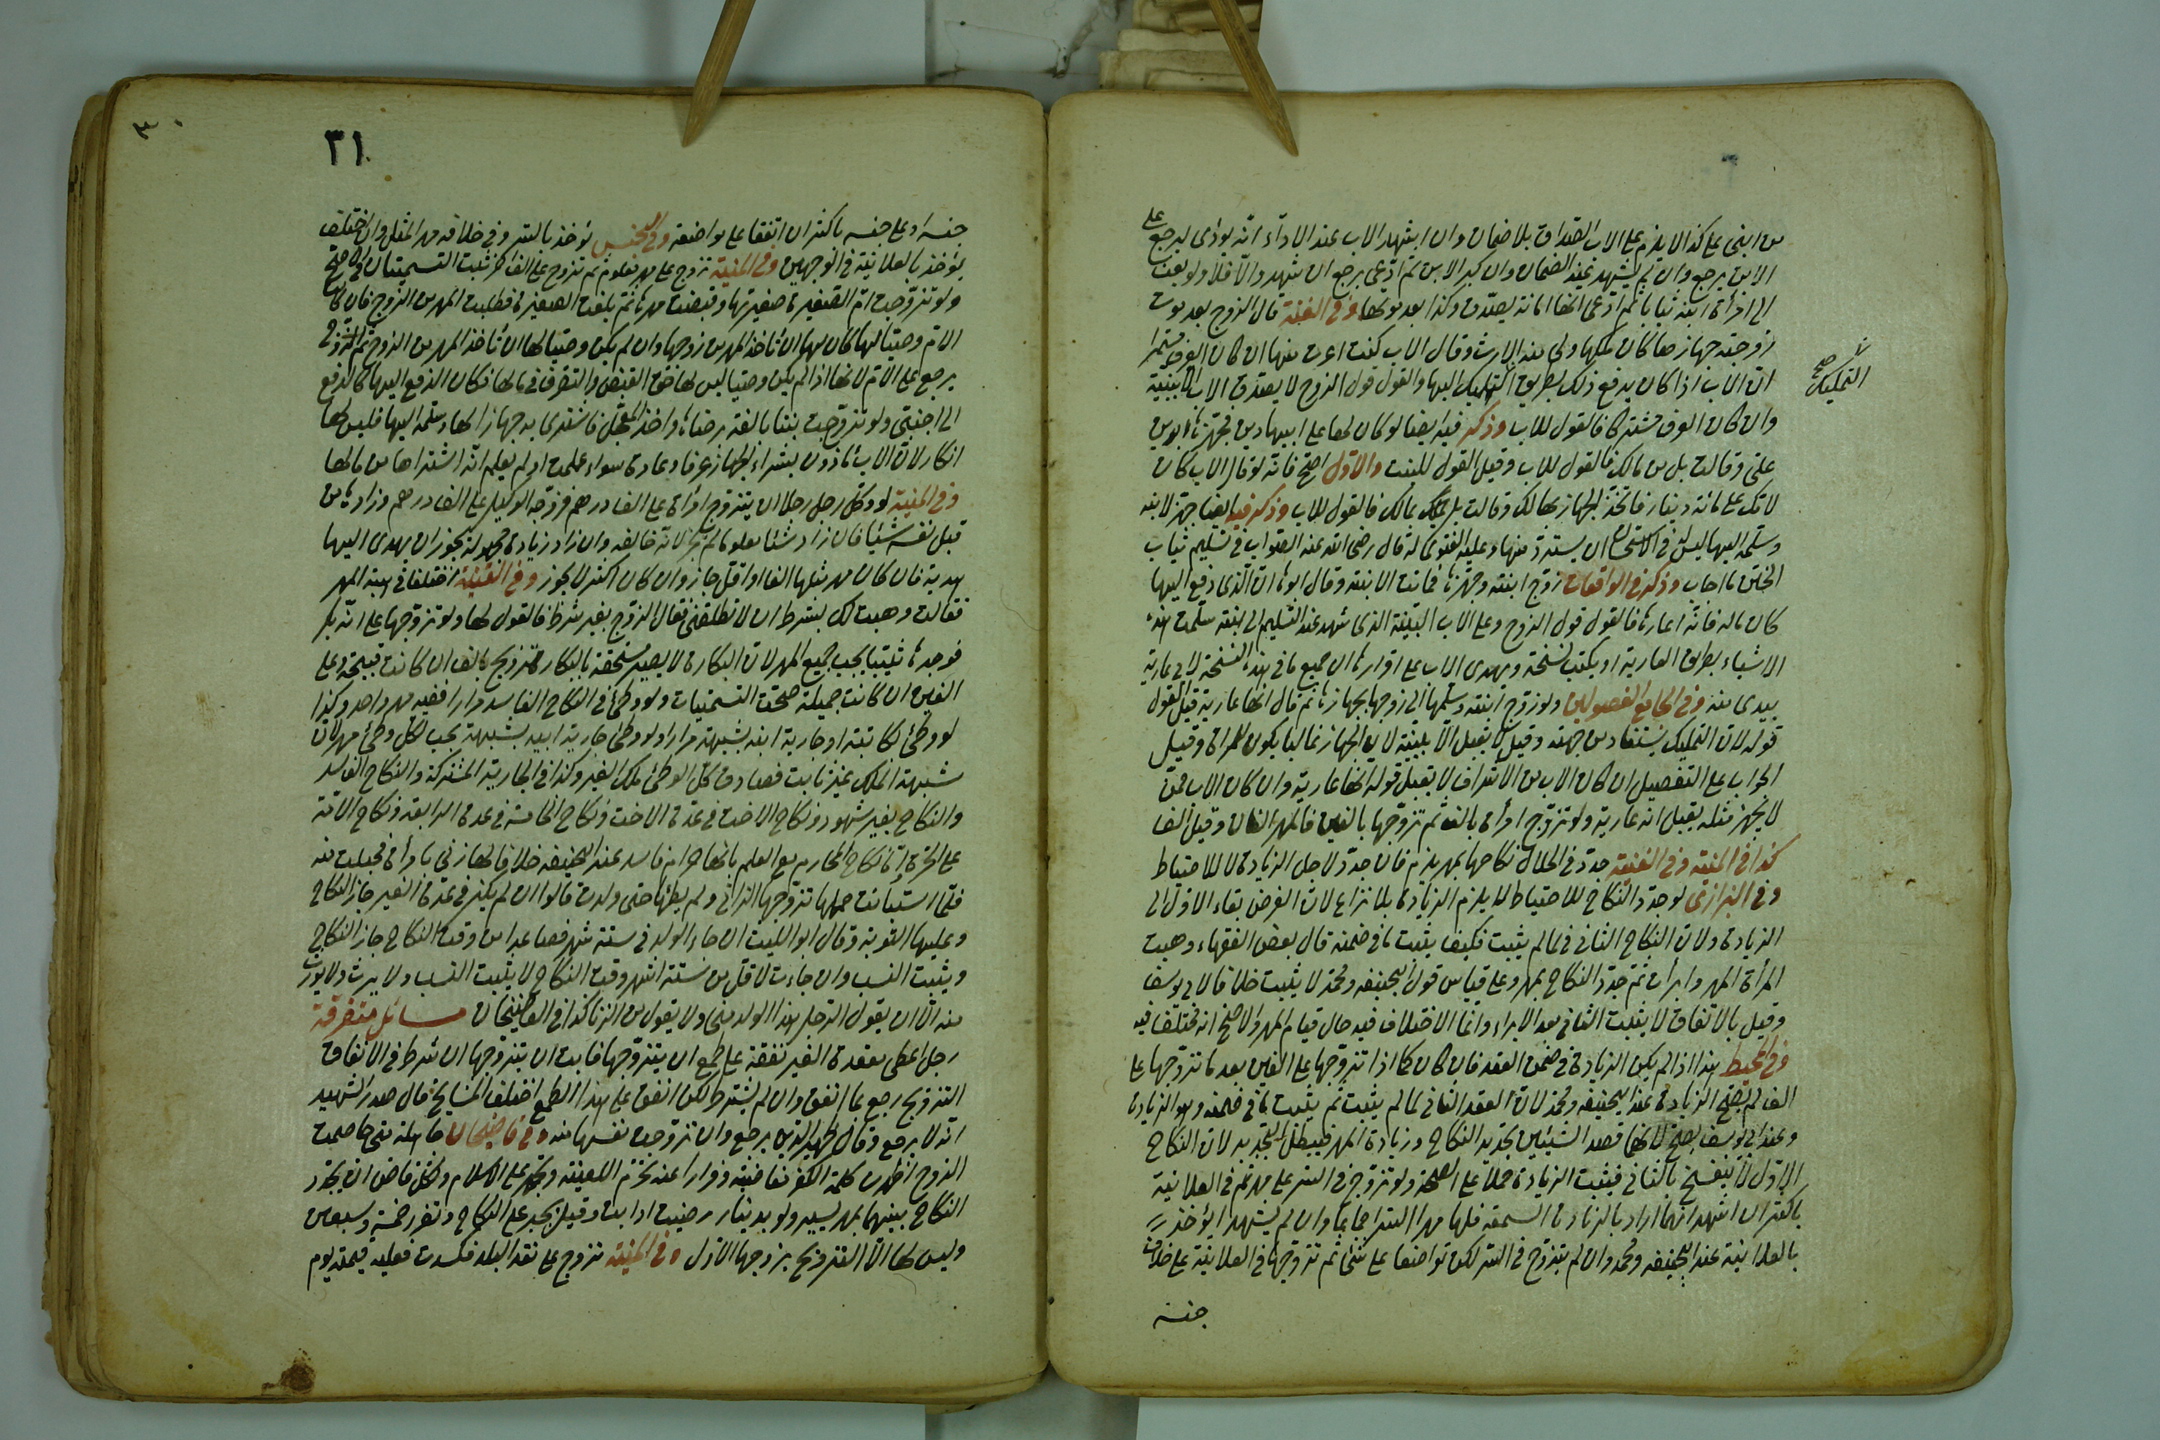 من ابنى على كذا لا يلزم على الاب الصداق بلا ضمان وان اشهد الاب عند الاداء انه يؤدى ليرجع على
الابن يرجع وان لم يشهد عند الضمان وان كبر الابن ثم ادعى يرجع ان شهد والا فلا ولو بعث
الى امرأة ابنه ثيابا ثم ادعى انها امانة يصدق وكذا بعد موتها وفى القنية قال الزوج بعد موت
زوجته جهازها كان ملكها ولى منه الارث وقال الاب كنت اعرت منها ان كان العرف مستمرا
ان الاب اذا كان يدفع ذلك بطريق التمليك اليها والقول قول الزوج لا يصدق الاب الا ببينة
التمليك صح
وان كان العرف مشتركا فالقول للاب وذكر فيه ايضا لو كان لها على ابيها دين فجهزها ابوها من
على وقالت بل من مالك فالقول للاب وقيل القول للبنت والاول اصح فانه لو قال الاب كان
لامك على مائة دينار فاتخذت الجهاز بها لك وقالت بل بمالك فالقول للاب وذكر فيه ايضا جهز لابنه
وسلمه اليها ليس له فى الاستحسان ان يسترد منها وعليه الفتوى قال رضى الله عنه الصواب فى تسليم ثياب
الختن ما اجاب وذكر فى الواقعات زوج ابنته وجهزها فماتت الابنة وقال ابوها ان الذى دفع اليها
كان ماله فانه اعارها فالقول قول الزوج وعلى الاب البينة الذى شهد عند التسليم الى ابنته سلمت هذه
الاشياء بطريق العارية او يكتب نسخة ويشهد الاب على اقرارها ان جميع ما فى هذه النسخة لابى عارية
بيدى منه وفى الجامع الفصولين ولو زوج ابنته وسلمها الى زوجها بجهازها ثم قال انها عارية قيل القول
قوله لان التمليك يستفاد من جهته وقيل لا يقبل الا ببينة لان الجهاز غالبا يكون للمرأة وقيل
الجواب على التفصيل ان كان الاب من الاشراف لا يقبل قوله انها عارية وان كان الاب ممن
لا يجهز مثله يقبل انه عارية ولو تزوج امرأة بالف ثم تزوجها بالفين فالمهر الفان وقيل الف
كذا فى المنية وفى القنية جدد فى الحلال نكاحها بمهر يلزم فان جدد لاجل الزيادة لا للاحتياط
وفى البزازى لو جدد النكاح للاحتياط لا يلزم الزيادة بلا نزاع لان الغرض بقاء الاول الى
الزيادة ولان النكاح الثانى فما لم يثبت فكيف يثبت ما فى ضمنه قال بعض الفقهاء وهبت
المرأة المهر وابرأت ثم جدد النكاح بمهر وعلى قياس قول ابيحنيفه ومحمد لا يثبت خلافا لابى يوسف
وقيل بالاتفاق لا يثبت الثانى بعد الابراء وانما الاختلاف فيه حال قيام المهر والاصح انه مختلف فيه
وفى المحيط هذا اذا لم يكن الزيادة فى ضمن العقد فان كان كما اذا تزوجها على الفين بعد ما تزوجها على
الف لم يصح الزيادة عند ابيحنيفه ومحمد لان العقد الثانى لما لم يثبت لم يثبت ما فى ضمنه وهو الزيادة
وعند ابى يوسف يصح لانها قصد الشيئين تجديد النكاح وزيادة المهر فيبطل التجديد لان النكاح
الاول لا ينفسخ بالثانى فيثبت الزيادة حملا على الصحة ولو تزوج فى السر على مهر ثم فى العلانية
باكثر ان اشهد انهما اراد بالزيادة السمعة فلها مهر السر اجماعا وان لم يشهدا يؤخذ
بالعلانية عند ابيحنيفه ومحمد وان لم يتزوج فى السر لكن تواضعا على شئ ثم تزوجها فى العلانية على خلاف
جنسه
٣٠
٣١
جنسه او على جنسه باكثر ان اتفقا على مواضعة وفى الجنس يؤخذ بالسر وفى خلافه مهر المثل وان اختلف
يؤخذ بالعلانية فى الوجهين وفى المنية تزوج على مهر معلوم ثم تزوج على الف اخر ثبت التسميتان فى الاصح
ولو تزوجت ام الصغيرة صغيرتها وقبضت مهرها ثم بلغت الصغيرة فطلبت المهر من الزوج فان كان
الام وصيا لها كان لها ان تأخذ المهر من زوجها وان لم يكن وصيا لها ان تأخذ المهر من الزوج ثم الزوج
يرجع على الام لانها اذا لم يكن وصيا ليس لها حق القبض والتصرف فى مالها فكان الدفع اليها كالدفع
الى اجنبى ولو تزوجت بنتا بالغة برضاها واخذ المعجل فاشترى به جهازا لها وسلمه اليها فليس لها
انكار لان الاب مأذون بشراء الجهاز عرفا وعادة سواء علمت او لم يعلم انه اشتراها من مالها
وفى المنية لو وكل رجل رجلا ان يتزوج امرأة على الف درهم فزوجه الوكيل على الف درهم وزادها من
قبل نفسه شيئا فان زاد شيئا معلوما لم يجز لانه خالفه وان زاد زيادة مجهولة يجوز ان يهدى اليها
هدية فان كان مهر مثلها الفا او اقل جاز وان كان اكثر لا يجوز وفى القنية اختلفا فى هبة المهر
فقالت وهبت لك بشرط ان لا تطلقنى فقال الزوج بغير شرط فالقول لها ولو تزوجها على انه بكر
فوجدها ثيبا يجب جميع المهر لان البكارة لا يصير مستحقة بالنكاح تزوج بالف ان كانت قبيحة وعلى
الفين ان كانت جميلة صحت التسميات ولو وطئ فى النكاح الفاسد مرارا ففيه مهر واحد وكذا
لو وطئ مكاتبته او جارية ابنه بشبهة مرارا ولو وطئ جارية ابيه بشبهة يجب لكل وطئ مهر لان
شبهة الملك غير ثابت فصادف كل الوطئ ملك الغير وكذا فى الجارية المشتركة والنكاح الفاسد
والنكاح بغير شهود ونكاح الاخت فى عدة الاخت ونكاح الخامسة فى عدة الرابعة ونكاح الامة
على الحرة اما نكاح المحارم مع العلم بانها حرام فاسد عند ابيحنيفه خلافا لهما زنى بامرأة فحبلت منه
فلما استبانت حملها تزوجها الزانى ولم يطئها حتى ولدت قالوا ان لم يكن فى عدة الغير جاز النكاح
وعليهما التوبة وقال ابو الليث ان جاء الولد فى ستة شهر فصاعدا من وقت النكاح جاز النكاح
ويثبت النسب وان جاءت لاقل من ستة اشهر وقت النكاح لا يثبت النسب ولا يرث ولا يورث
منه الا ان يقول الرجل هذا الولد منى ولا يقول من الزنا كذا فى القاضيخان مسائل متفرقة
رجل اعطى معقدة الغير نفقة على طمع ان يتزوجها فابت ان يتزوجها ان شرط فى الانفاق
التزويج رجع بما انفق وان لم يشترط لكن انفق على هذا الطمع اختلف المشايخ قال صدر الشهيد
انه لا يرجع وقال ظهير الدين يرجع وان تزوجت نفسها منه وفى قاضيخان جاهلة متى خاصمت
الزوج اظهرت كلمة الكفر نفاضية وفرارا عنه تحرم اللعينة وتجبر على الاسلام ولكل قاض ان يجدد
النكاح بينهما بمهر يسير ولو بدينار رضيت او ابت وقيل يجبر على النكاح وتعزر خمسة وسبعين
وليس لها الا التزويج بزوجها الاول وفى المنية تزوج على نقد البلد فكسدت فعليه قيمته يوم